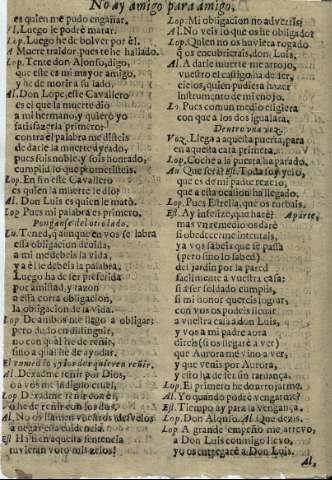 No ay amigo para amigo,
es quien me pudo engañar.
Vl. Luego le podrè matar.
Lop. Luego he de bolver por èl.
A Muere traidor, pues te he hallado.
Lop. Tente don Alonso, digo,
que este es mi mayor amigo,
y he de morir a su lado.
Al. Don Lope, este Cavallero
es el que la muerte diò
a mi hermano, y quiero yo
satisfazerla primero:
contra èl palabra me disteis
de darle la muerte ayrado,
pues sois noble, y sois honrado,
cumplid lo que prometisteis.
Lop. En fin este Cavallero
es quien la muerte le diò?
Al. Don Luis es quien le matò.
Lop. Pues mi palabra es primero.
Ponganse del otro lado.
Lu. Tened, q aunque en vos se labra
essa obligacion devida,
a mi me debeis la vida,
y a èl le debeis la palabra,
luego ha de ser preferida
por amistad, y razon
a essa corta obligacion,
la obligacion de la vida.
Lop. De ambos me llego a obligar;
pero dudo en distinguir,
no con qual he de reñir,
sino a qual he de ayudar.
Al. Dexadme reñir por Dios,
o a vos me indigno cruel,
Lop. Dexadme reñir con èl,
vò he de reñir con los dos.
Al. No os llamen vuestros desvelos
a negar essa evidencia.
Est Ha si en aquesta sentencia
tuvieran voto mis zelos!
Lop. Mi obligacion no advertis?
Al. No veis lo que os he obligado?
Lop. Quien no os huviera rogado
q os encubrierais, don Luis.
Al. A darle muerte me arrojo,
vuestro el castigo ha de ser,
cielos, quien pudiera hazer
instrumento de mi enojo.
Lo. Pues como un medio eligiera
con que a los dos igualara,
Dentro una voz.
Voz. Llega a aquesta puerta, para
en aquesta casa primera.
Lop. Coche a la puerta ha parado.
Au Que serà? Est. Toda soy yelo,
que es de mi padre rezelo,
que a esta ocasion ha llegado.
Lop. Pues Estrella, que os turbais.
Est. Ay infelize, què harè? Aparte,
mas ya remedio os darè
si obedecerme intentais,
ya vos sabeis que se passa
(pero sino lo sabed)
del jardin por la pared
facilmente a vuestra casa:
si à ser soldado cumplis,
si mi honor quereis lograr,
con vos os podeis llevar
a vuestra casa a don Luis,
y vos a mi padre aora
direis (si os llegare a ver)
que Aurora me vino a ver,
y que venis por Aurora,
y esto ha de ser sin tardança.
Lop. El primero he de arrojarme.
Al. Yo quando podrè vengarme?
Est. Tiempo ay para la vengança.
Lop. Don Alonso. Al. Que dezis.
Lop. A grande empeño me atrevo,
a Don Luis conmigo llevo,
yo os entregarè a Don Luis.
Al,